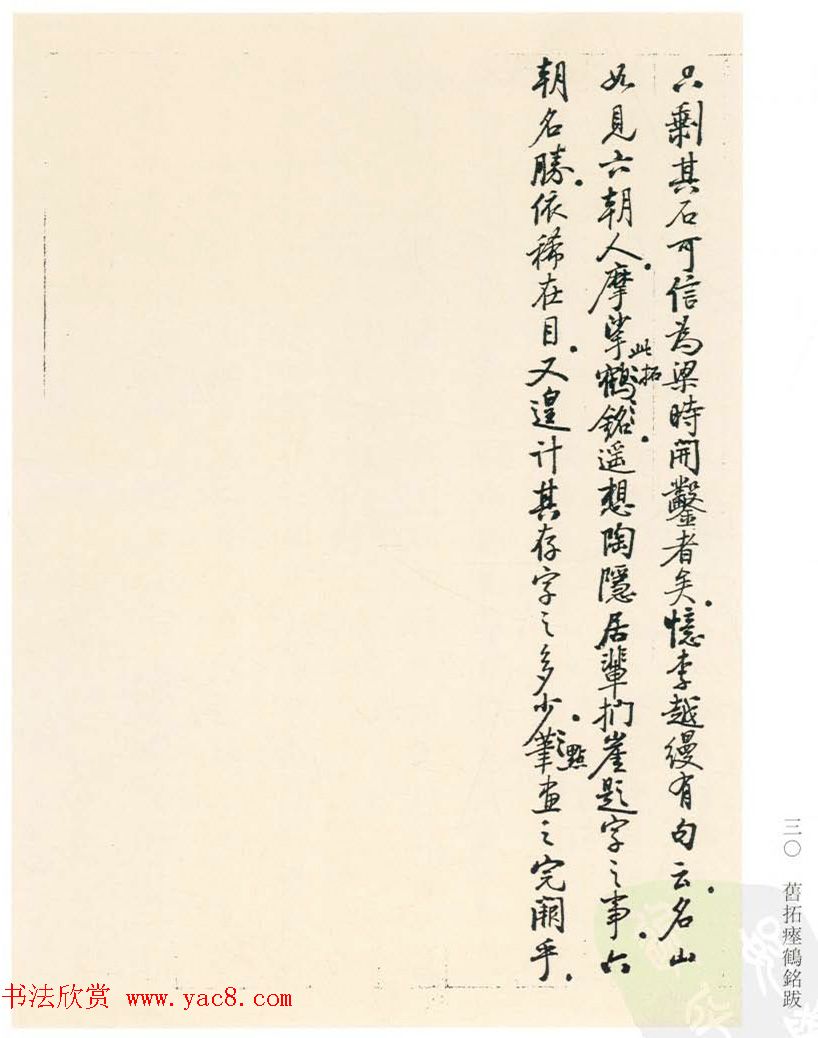 三〇 舊拓瘞鶴銘跋
只剩其石可信為梁時開鑿者矣。憶李越縵有句云。名山
如見六朝人。摩挲鶴銘。遥想陶隱居輩捫崖題字之事。六
此拓
朝名勝。依稀在目。又遑計其存字之多少。筆畫之完闕乎。
點
书法欣赏 www.yac8.com